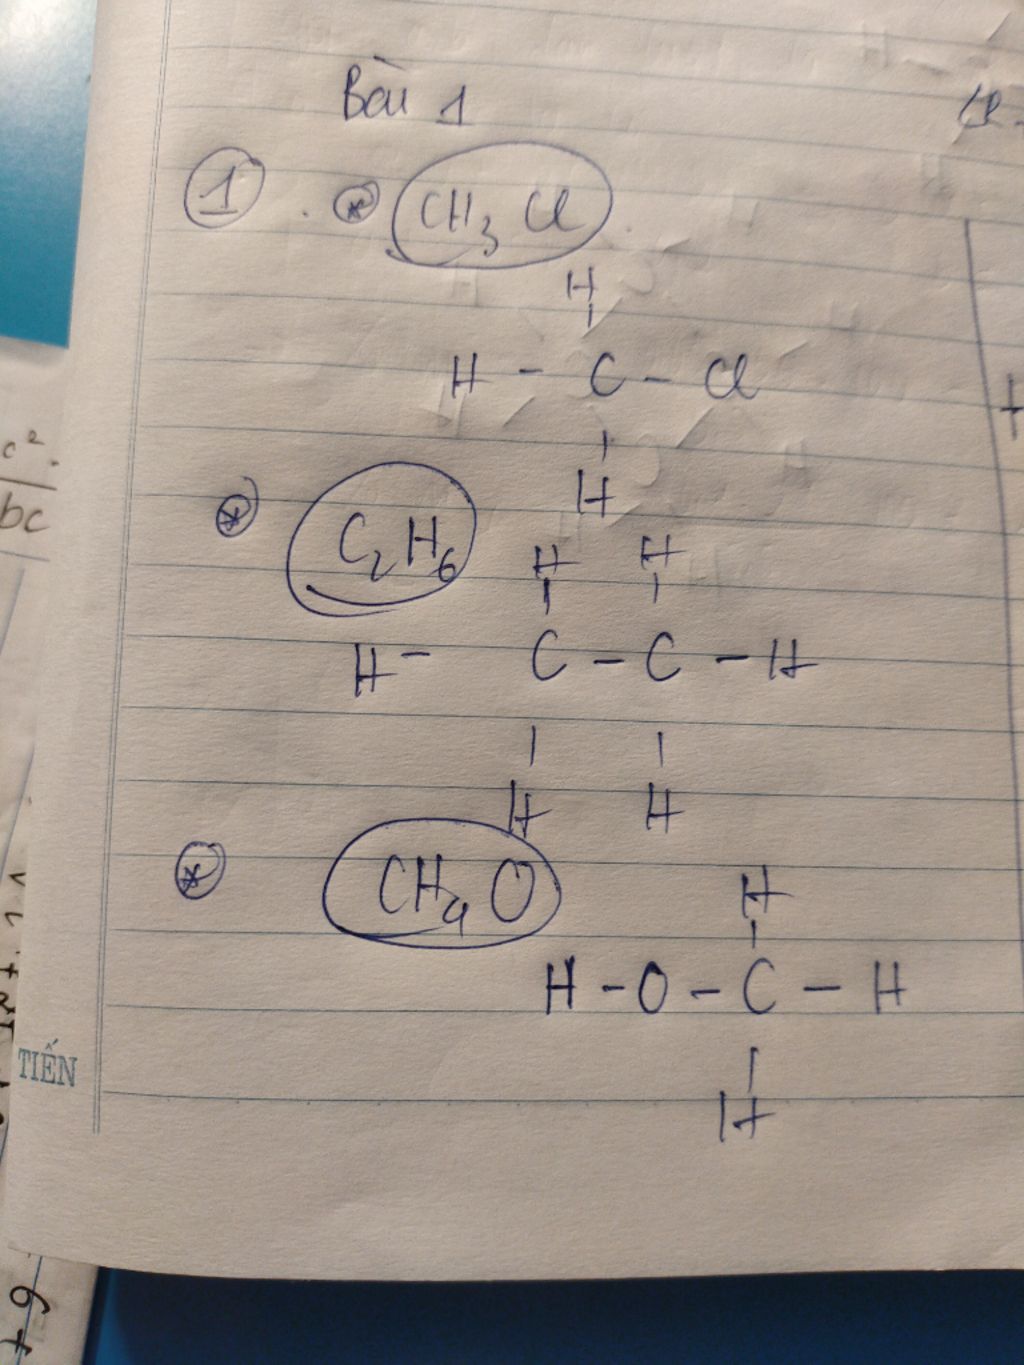 Bài 1
1 * CH3 Cl
H
H - C - Cl
H
* C2H6
H H
H - C - C - H
H H
* CH4 O
H
H - O - C - H
H
c2
bc
TIẾN
6